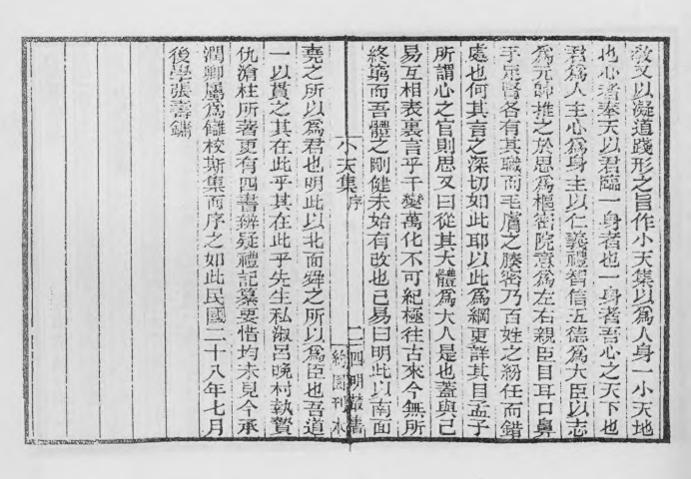 敎又以凝道踐形之旨作小天集以爲人身一小天地
也心者奉天以君臨一身者也一身者吾心之天下也
君爲人主心爲身主以仁義禮智信五德爲大臣以志
爲元帥推之於思爲樞密院意爲左右親臣目耳口鼻
手足腎各有其職而毛膚之腠密乃百姓之紛任而錯
處也何其言之深切如此耶以此爲綱更詳其目孟子
所謂心之官則思又曰從其大體爲大人是也蓋與己
易互相表裏言乎千變萬化不可紀極往古來今無所
終窮而吾體之剛健未始有改也己易曰明此以南面
小天集 序
二 四明叢書
約園刊本
堯之所以爲君也明此以北面舜之所以爲臣也吾道
一以貫之其在此乎其在此乎先生私淑呂晚村執贄
仇滄柱所著更有四書辨疑禮記纂要惜均未見今承
潤卿屬爲讎校斯集而序之如此民國二十八年七月
後學張壽鏞